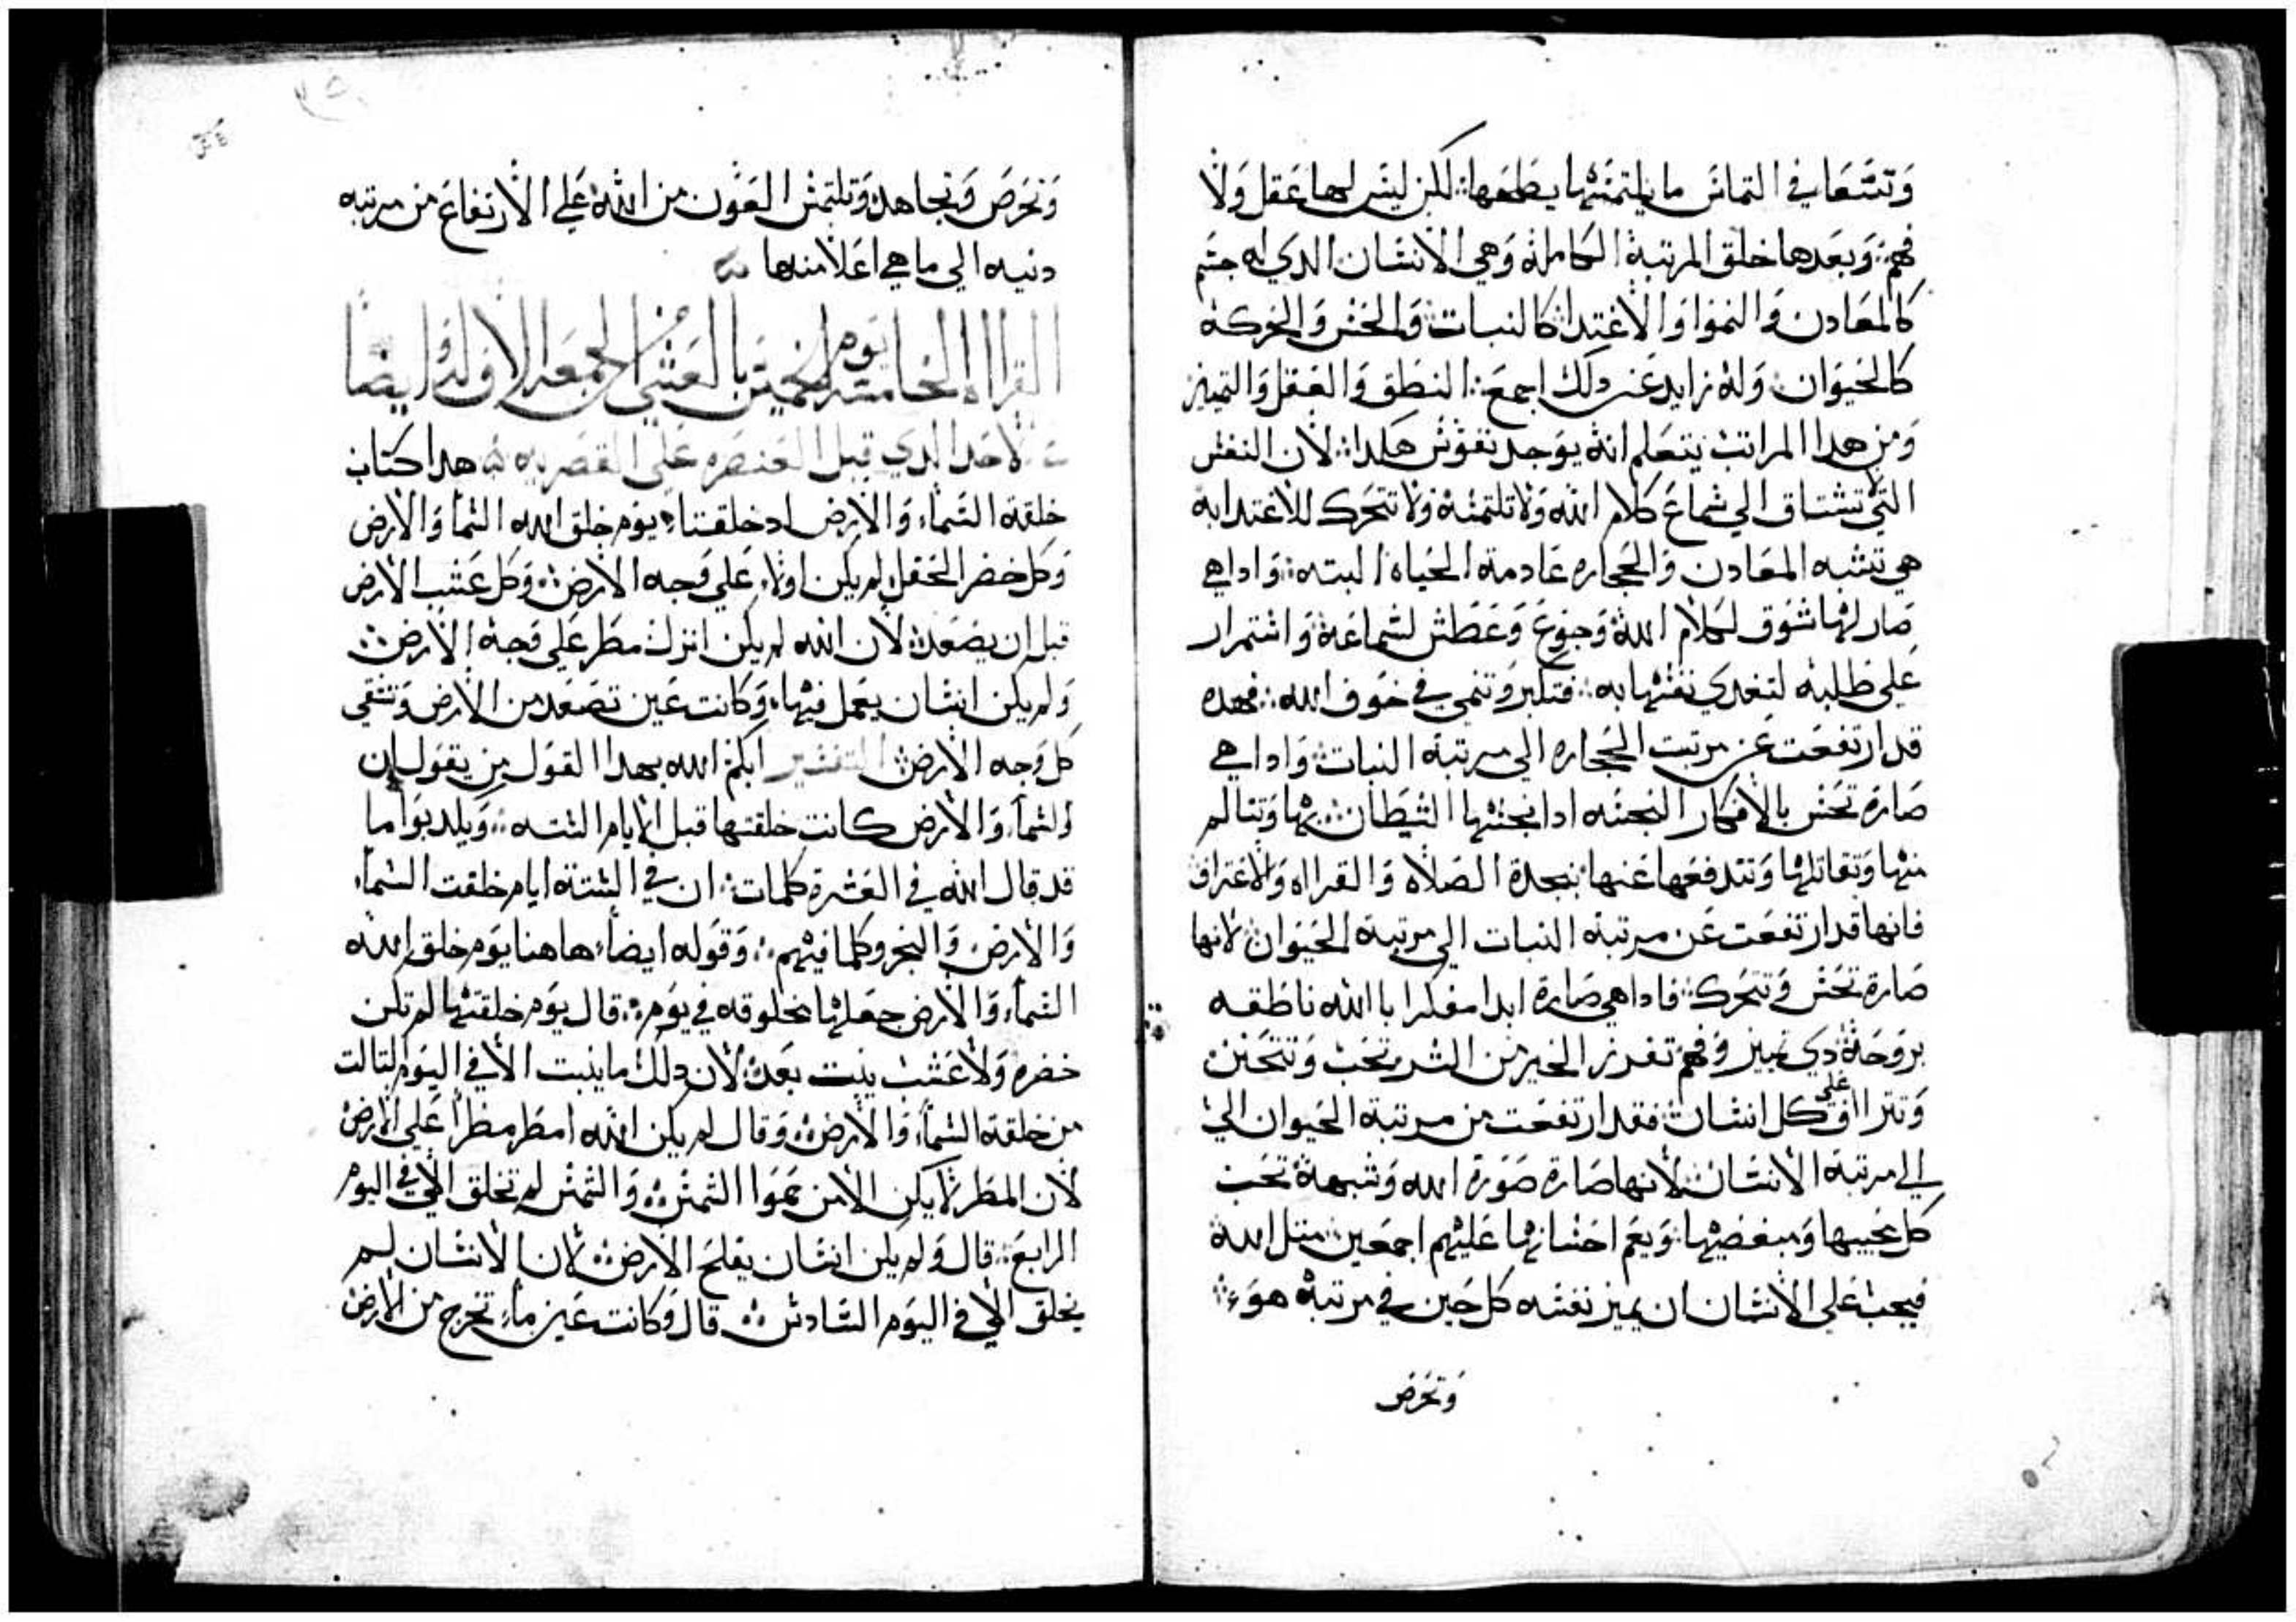 وَتسَعَا في التماسَ ما يلتمسَها بطعَها: لكن ليسَ لها عَقل وَلا
فهمَ: وَبعَدها خلق المرتبة الكاملة وَهي الانسَان الدي له جسَم
كالمعَادن وَالنموا وَالاغتدا كالنبات وَالحسَ وَالحَركة
كالحَيوَان: وَله زايد عَن دلك اجمعَ: النطق وَالعَقل وَالتمييز
وَمن هدا المراتب يتعَلم انه يوَجد نفوَسَ هكدا: لان النفسَ
التي لا تشتاق الي سَماعَ كلام الله وَلا تلتمسَه وَلا تتحَرك للاغتدا به
هي تشبه المعَادن وَالحَجاره عَادمة الحَياة البته: وَادا هي
صَار لها شوَق لكلام الله وَجوعَ وَعَطش لسَماعَه وَاسَتمرار
عَلي طلبه لتغدي نفسَها به: فتكبر وَتنمي في خوَف الله: فهده
قد ارتفعَت عَن مرتبت الحَجاره الي مرتبة النبات وَادا هي
صَارة تحَسَ بالافكار النجسَه ادا نجسَها الشيَطان بها وَتتالم
منها وَتقاتلها وَتتدفعَها عَنها: بنجدة الصَلاه وَالقرااه وَالاعَتراف
فانها قد ارتفعَت عَن مرتبة النبات الي مرتبة الحَيوَان لانها
صَارة تحَسَ وَتتحَرك: فادا هي صَارة ابدا مفكرا باالله ناطقه
بروَحَة دي تمييز وَفهمَ تفرز الخير من الشر تحَب وَتتحَنن
وَتتراف علي كل انسَان: فقد ارتفعَت من مرتبة الحَيوان الي
الي مرتبة الانسَان لانها صَارة صَورة الله وَشبهه تحَب
كل محَبيها وَمبغضيها: وَيعَم احَسَانها عَليهم اجمعَين: متل الله
فيجب عَلي الانسَان ان يميز نفسَه كل حَين في مرتبة هوَ
وَتحَرصَ
وَتحَرصَ وَتجاهد وَتلتمسَ العَوَن من الله عَلي الارتفاعَ من مرتبه
دنيه الي ما هي اعَلا منها
القرااه الخامسَه يوَم الخميسَ بالعَشي الجمعَه الاوَله وَايضاً
الاحَد الدي قبل العَنصَره عَلي القصَريه هدا كتاب
خلقة السَماء وَالارض اد خلقتا: يوَم خلق الله السَما وَالارض
وَكل خضر الحَقل لم يكن اولاً عَلي وَجه الارض وَكل عَشب الارض
قبل ان يصَعَد: لان الله لم يكن انزل مطر عَلي وَجه الارض
وَلم يكن انسَان يعَمل فيها: وَكانت عَين تصَعَد من الارض وَتسَقي
كل وَجه الارض التفسَير ابكم الله بهدا القوَل من يقوَل ان
السَماء وَالارض كانت خلقتها قبل الايام السَته: وَيلدبوَا ما
قد قال الله في العَشرة كلمات: ان في السَتة ايام خلقت السَماء
وَالارض وَالبحَر وكلما فيهم: وَقوَله ايضاً هاهنا يوَم خلق الله
السَماء وَالارض جعَلها مخلوقه في يوَم: قال يوَم خلقتها لم تكن
خضره وَلا عَشب ينبت بعَد: لان دلك ما ينبت الا في اليوَم التالت
من خلقة السَماء وَالارض وَقال لم يكن الله امطر مطراً عَلي الارض
لان المطر لا يكن الا من حَموَا الشمسَ: وَالشمسَ لم تخلق الا في اليوَم
الرابعَ: قال وَلم يكن انسَان يفلحَ الارض: لان الانسَان لم
يخلق الا في اليوَم السَادسَ: قال وَكانت عَين ماء تخرج من الارض